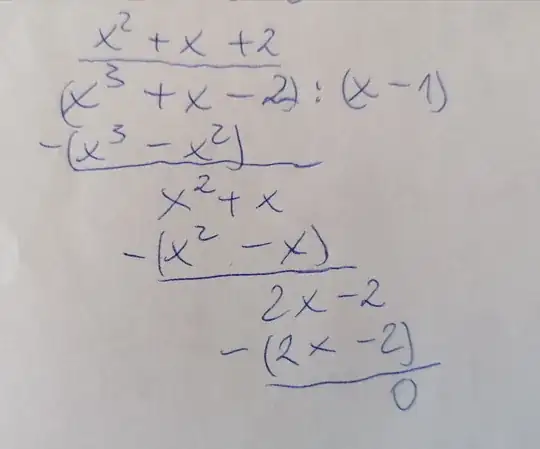 x² + x + 2
(x³ + x - 2) : (x - 1)
-(x³ - x²)
x² + x
-(x² - x)
2x - 2
-(2x - 2)
0